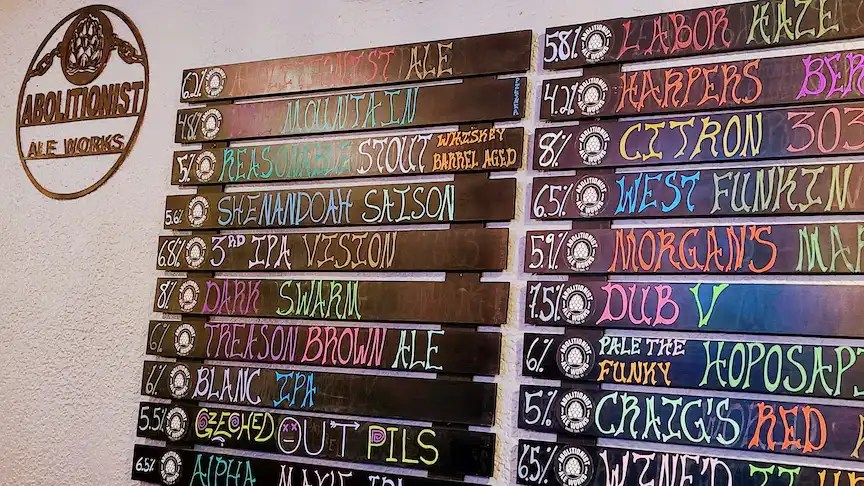 ABOLITIONIST
ALE WORKS
6.2% ABOLITIONIST ALE
4.8% MOUNTAIN
5% REASONABLE STOUT WHISKEY BARREL AGED
5.6% SHENANDOAH SAISON
6.8% 3RD IPA VISION
8% DARK SWARM
6% TREASON BROWN ALE
6% BLANC IPA
5.5% CZECHED OUT PILS
6.5% ALPHA IPA
5.8% LABOR HAZE
4.2% HARPERS BER
8% CITRON 303
6.5% WEST FUNKIN
5.9% MORGAN'S MAR
7.5% DUB V
6% PALE THE FUNKY HOPOSAPI
5% CRAIG'S RED
6.5% WINE'D IT UP